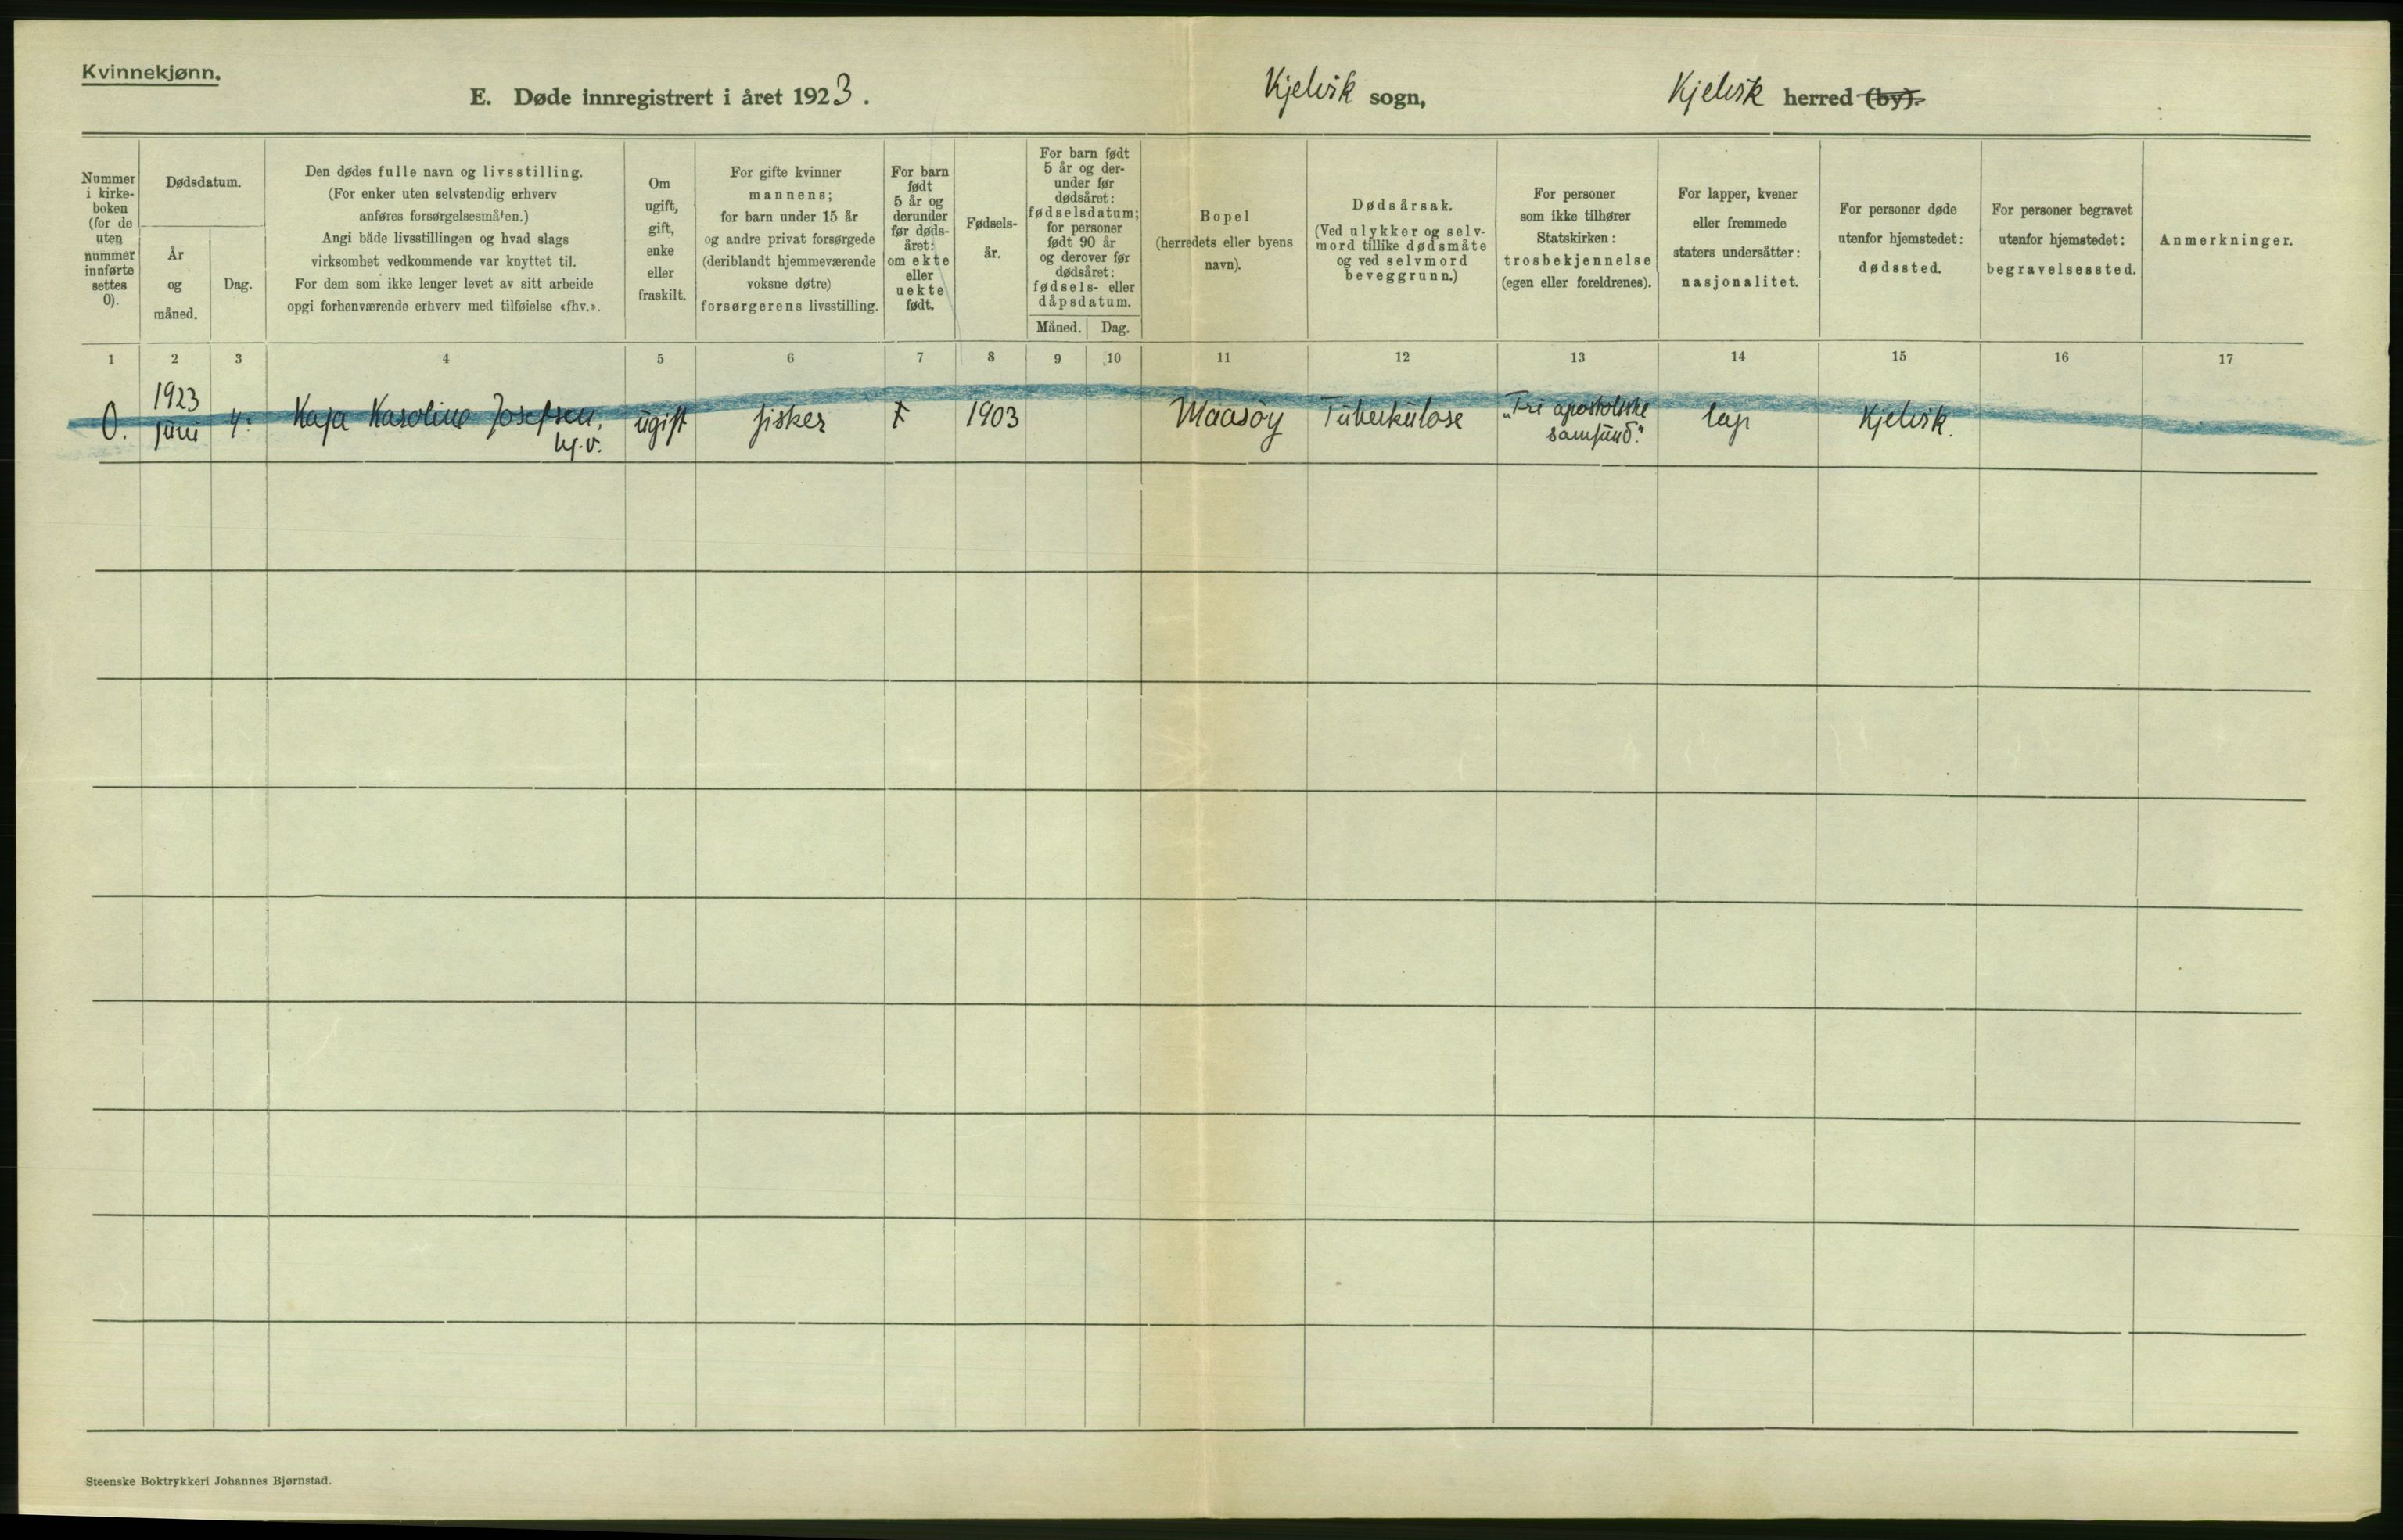 Kvinnekjønn.
E. Døde innregistrert i året 1923.
Kjelvik sogn,
Kjelvik herred (by).
Nummer
i kirke-
boken
(for de
uten
nummer
innførte
settes
0).
Dødsdatum.
År
og
måned.
Dag.
Den dødes fulle navn og livsstilling.
(For enker uten selvstendig erhverv
anføres forsørgelsesmåten.)
Angi både livsstillingen og hvad slags
virksomhet vedkommende var knyttet til.
For dem som ikke lenger levet av sitt arbeide
opgi forhenværende erhverv med tilføielse «fhv.».
Om
ugift,
gift,
enke
eller
fraskilt.
For gifte kvinner
mannens;
for barn under 15 år
og andre privat forsørgede
(deriblandt hjemmeværende
voksne døtre)
forsørgerens livsstilling.
For barn
født
5 år og
derunder
før døds-
året:
om ekte
eller
uekte
født.
Fødsels-
år.
For barn født
5 år og der-
under før
dødsåret:
fødselsdatum;
for personer
født 90 år
og derover før
dødsåret:
fødsels- eller
dåpsdatum.
Måned.
Dag.
Bopel
(herredets eller byens
navn).
Dødsårsak.
(Ved ulykker og selv-
mord tillike dødsmåte
og ved selvmord
beveggrunn.)
For personer
som ikke tilhører
Statskirken:
trosbekjennelse
(egen eller foreldrenes).
For lapper, kvener
eller fremmede
staters undersåtter:
nasjonalitet.
For personer døde
utenfor hjemstedet:
dødssted.
For personer begravet
utenfor hjemstedet:
begravelsessted.
Anmerkninger.
1 2 3 4 5 6 7 8 9 10 11 12 13 14 15 16 17
0.
1923
juni
4.
Kaja Karoline Josefsen,
hj.v.
ugift
fisker
1903
Maasöy
Tuberkulose
"Fri apostoliske
samfund."
lap
Kjelvik.
Steenske Boktrykkeri Johannes Bjørnstad.